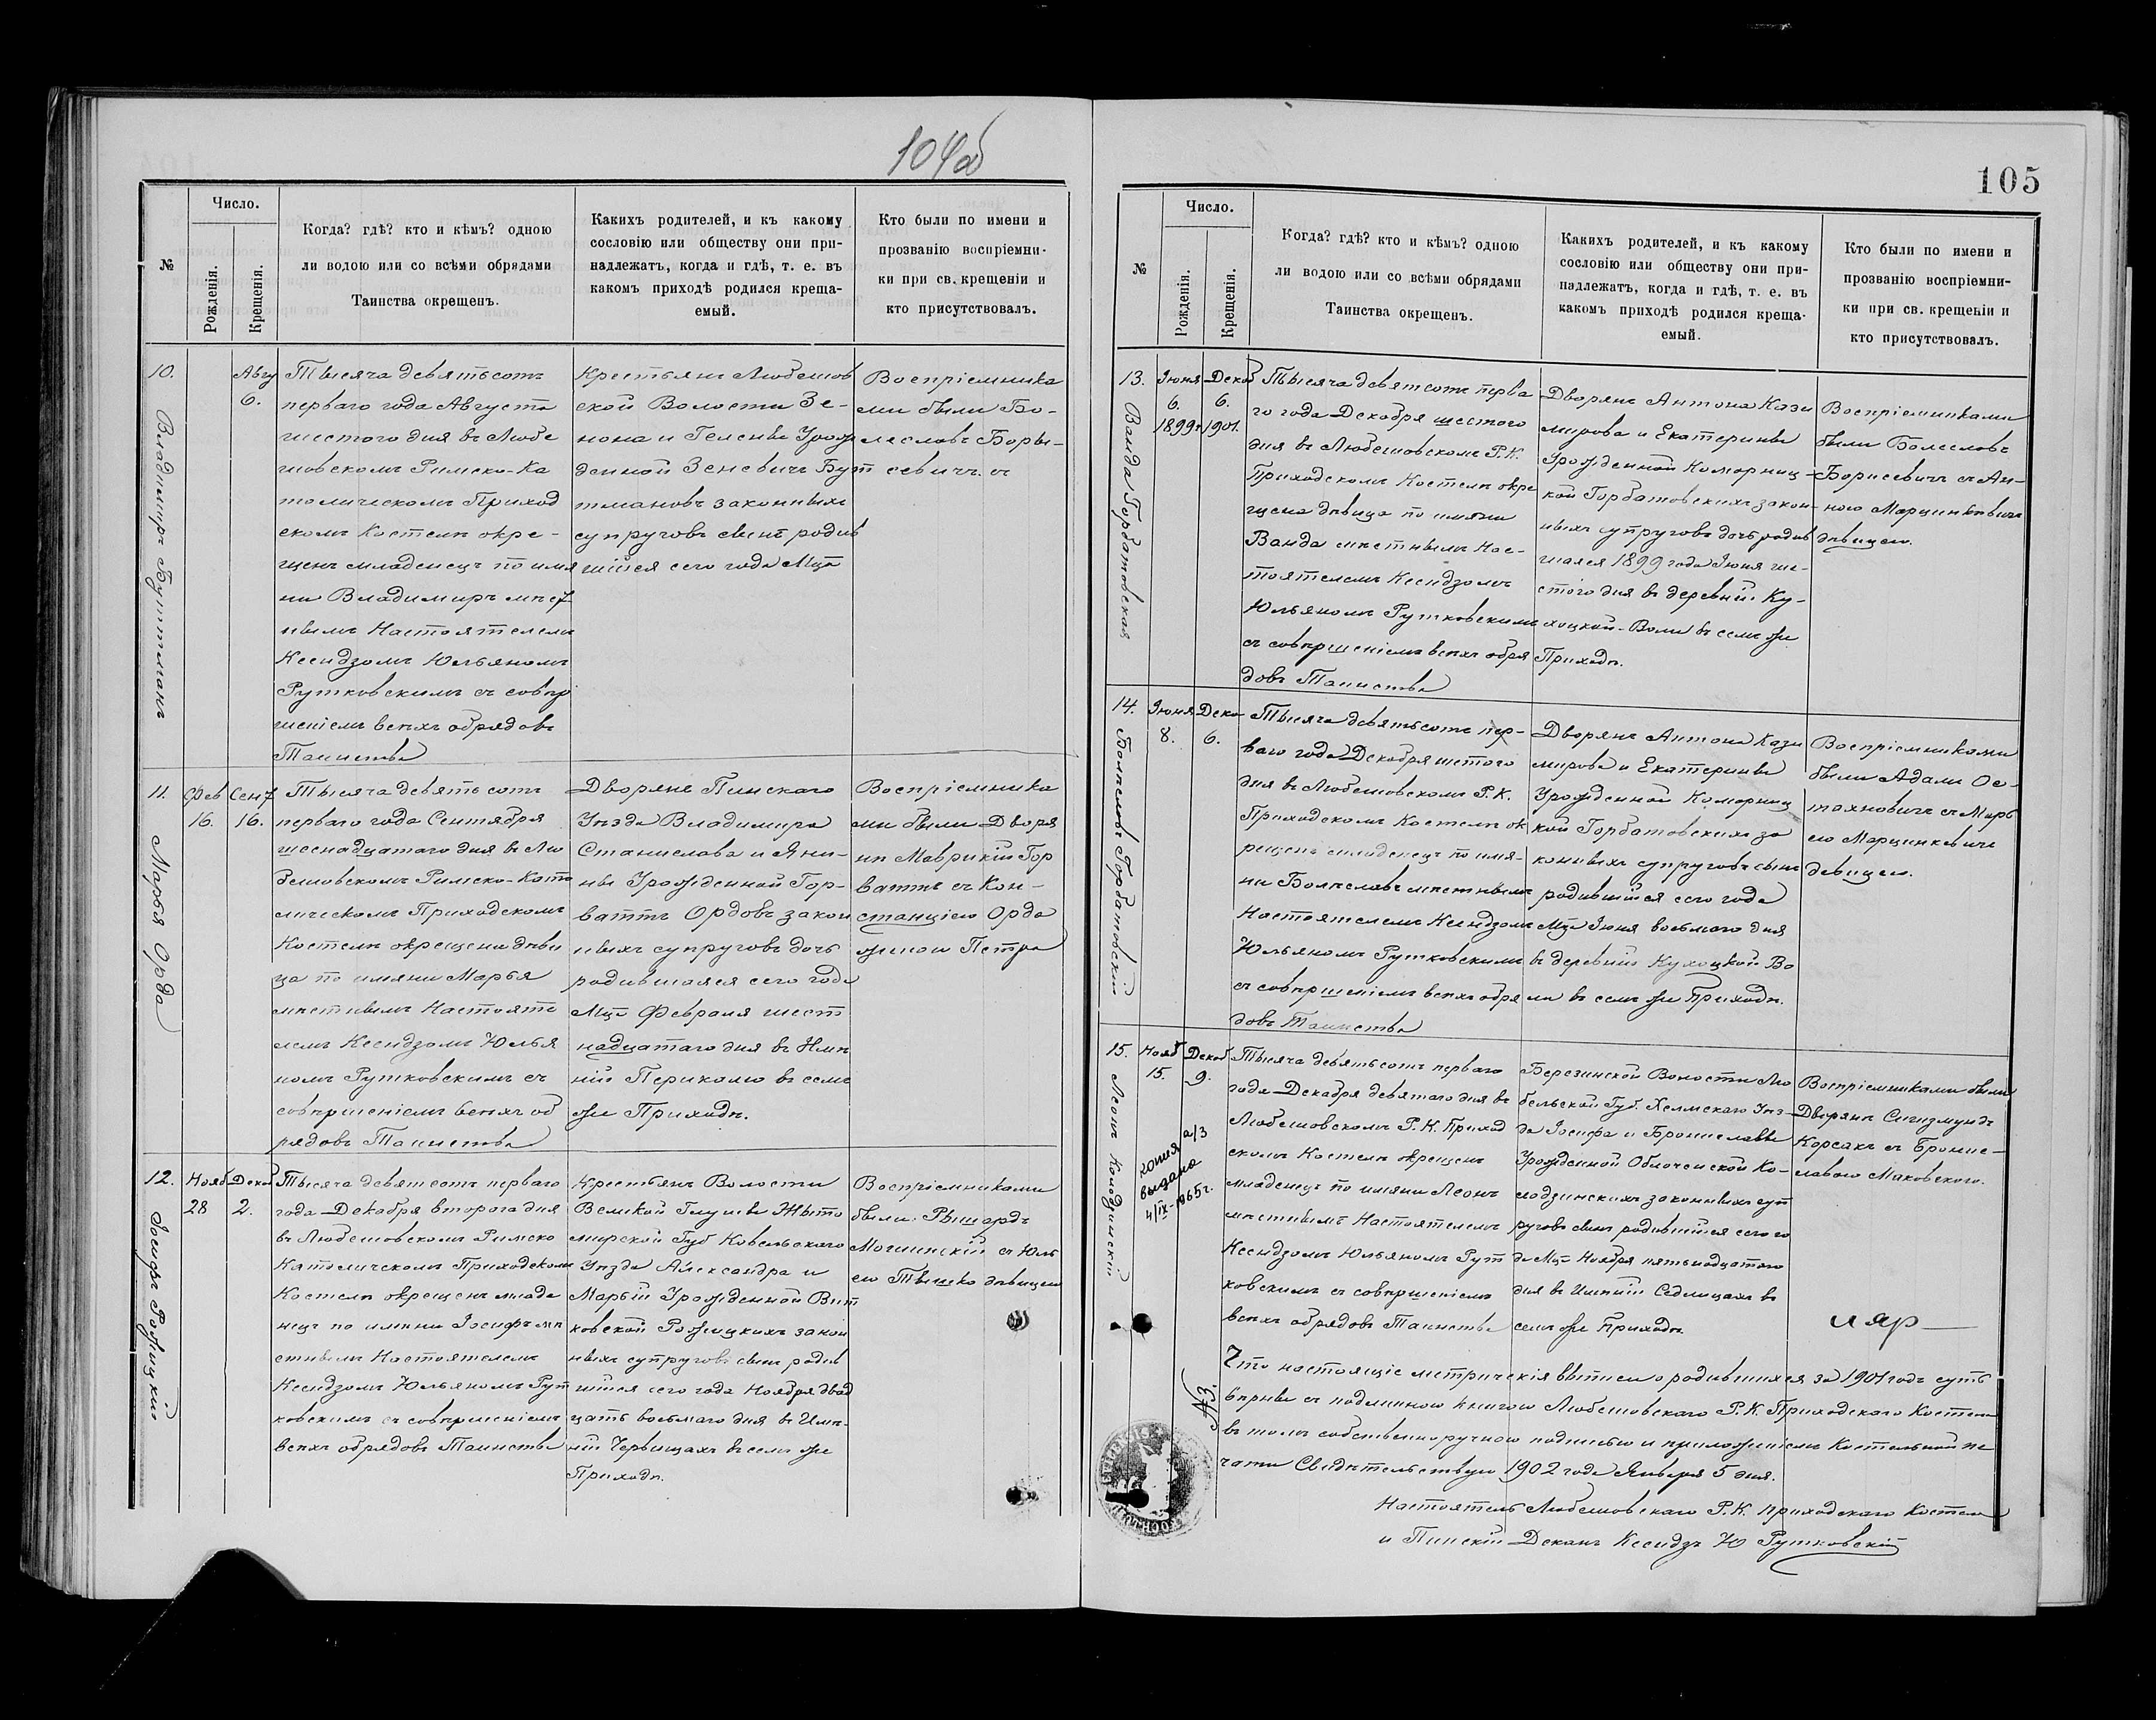 104об
№
Число.
Рожденія.
Крещенія.
Когда? гдѣ? кто и кѣмъ? одною
ли водою или со всѣми обрядами
Таинства окрещенъ.
Какихъ родителей, и къ какому
сословію или обществу они при-
надлежатъ, когда и гдѣ, т. е. въ
какомъ приходѣ родился креща-
емый.
Кто были по имени и
прозванію воспріемни-
ки при св. крещеніи и
кто присутствовалъ.
10.
Владимиръ Буттманъ
Авгу
6.
Тысяча девятьсотъ
перваго года Августа
шестого дня въ Любе
шовскомъ Римско-Ка
толическомъ Приход
скомъ Костелѣ окре-
щенъ младенецъ по имя
ни Владимиръ мѣст
нымъ Настоятелемъ
Ксендзомъ Юльяномъ
Рутковскимъ съ совѣр
шеніемъ всѣхъ обрядовъ
Таинства
Крестьянъ Любешов
ской Волости Зе-
нона и Гелены Урож
денной Зеневичъ Бут
тмановъ законныхъ
супруговъ сынъ родив
шійся сего года Мца
Воспріемника
ми были Бо-
леславъ Боры-
севичъ съ
11.
Марья Орда
Фев
16.
Сент
16.
Тысяча девятьсотъ
перваго года Сентября
шеснадцатаго дня въ Лю
бешовскомъ Римско-Като
лическомъ Приходскомъ
Костелѣ окрещена дѣви
ца по имяни Марья
мѣстнымъ Настояте
лемъ Ксендзомъ Юлья
номъ Рутковскимъ съ
совѣршеніемъ всѣхъ об
рядовъ Таинства
Дворянъ Пинскаго
Уѣзда Владимира
Станислава и Яни-
ны Урожденной Гор-
ваттъ Ордовъ закон
ныхъ супруговъ дочь
родившаяся сего года
Мца Февраля шест
надцатаго дня въ Имѣ
ніи Перикалю въ семъ
же Приходѣ.
Воспріемника
ми были Дворя
нѣ Маврикій Гор
ваттъ съ Кон-
станціею Орда
женою Петра
12.
Іосифъ Рожицкій
Нояб
28
Декаб
2.
Тысяча девятсотъ перваго
года Декабря второго дня
въ Любешовскомъ Римско
Католическомъ Приходскомъ
Костелѣ окрещенъ младе
нецъ по имяни Іосифъ мѣ
стнымъ Настоятелемъ
Ксендзомъ Юльяномъ Рут
ковскимъ съ совѣршеніемъ
всѣхъ обрядовъ Таинства
Крестьянъ Волости
Великой Глуши Жито
мирской Губ Ковельскаго
Уѣзда Александра и
Марьи Урожденной Вит
ковской Рожицкихъ закон
ныхъ супруговъ сынъ родив
шійся сего года Ноября двад
цать восьмаго дня въ Имѣ-
ніи Червищахъ въ семъ же
Приходѣ.
Воспріемниками
были: Рышардъ
Могинскій съ Юль
ею Тышко дѣвицею
105
№
Число.
Рожденія.
Крещенія.
Когда? гдѣ? кто и кѣмъ? одною
ли водою или со всѣми обрядами
Таинства окрещенъ.
Какихъ родителей, и къ какому
сословію или обществу они при-
надлежатъ, когда и гдѣ, т. е. въ
какомъ приходѣ родился креща-
емый.
Кто были по имени и
прозванію воспріемни-
ки при св. крещеніи и
кто присутствовалъ.
13.
Ванда Горбатовская
Іюня
6.
1899г
Декаб
6.
1901.
Тысяча девятсотъ перва
го года Декабря шестого
дня въ Любешовскомъ Р.К.
Приходскомъ Костелѣ окре
щена дѣвица по имяни
Ванда мѣстнымъ Нас-
тоятелемъ Ксендзомъ
Юльяномъ Рутковскимъ
съ совѣршеніемъ всѣхъ обря
довъ Таинства
Дворянъ Антона Кази
мирова и Екатерины
Урожденной Коморниц-
кой Горбатовскихъ закон-
ныхъ супруговъ дочь родив
шаяся 1899 года Іюня ше-
стого дня въ деревни Ку-
хоцкой-Воли въ семъ же
Приходѣ.
Воспріемниками
были Болеславъ
Борисевичъ съ Ан-
ною Марцинкѣвичъ
дѣвицею.
14.
Болѣславъ Горбатовскій
Іюня
8.
Дека
6.
Тысяча девятьсотъ пер-
ваго года Декабря шетого
дня въ Любешовскомъ Р.К.
Приходскомъ Костелѣ ок
рещенъ младенецъ по имя-
ни Болѣславъ мѣстнымъ
Настоятелемъ Ксендзомъ
Юльяномъ Рутковскимъ
съ совѣршеніемъ всѣхъ обря
довъ Таинства
Дворянъ Антона Кази
мирова и Екатерины
Урожденной Коморниц
кой Горбатовскихъ за
конныхъ супруговъ сынъ
родившійся сего года
Мца Іюня восьмаго дня
въ деревни Кухоцкой Во
ли въ семъ же Приходѣ.
Воспріемниками
были Адамъ Ос-
тахновичъ съ Марь
ею Марцинкевичъ
девицею.
15.
Леонъ Колодзинскій
Нояб
15.
Декаб
9.
копия а/з
выдана
4/IX-1965г.
Тысяча девятьсотъ перваго
года Декабря девятаго дня въ
Любешовскомъ Р.К. Приход
скомъ Костелѣ окрещенъ
младенецъ по имяни Леонъ
мѣстнымъ Настоятелемъ
Ксендзомъ Юльяномъ Рут
ковскимъ съ совѣршеніемъ
всѣхъ обрядовъ Таинства
Березинской Волости Лю
бельской Губ. Хелмскаго Уѣз-
да Іосифа и Брониславы
Урожденной Облочемской Ко-
лодзинскихъ законныхъ суп
руговъ сынъ родившійся сего го
да Мца Ноября пятьнадцатаго
дня въ Имѣніи Седлищахъ въ
семъ же Приходѣ.
Воспріемниками были
Дворянѣ Сигизмундъ
Корсакъ съ Бронис-
лавою Маковского.
№3.
Что настоящіе метрическія выписи о родившихся за 1901 годъ суть
вѣрны съ подлинною книгою Любешовскаго Р.К. Приходскаго Костела
въ томъ собственноручною подписью и приложеніемъ Костельной пе
чати Свидѣтельствую 1902 года Января 5 дня.
Настоятель Любешовскаго Р.К. приходскаго Костела
и Пинскій Деканъ Ксендзъ Ю Рутковскій